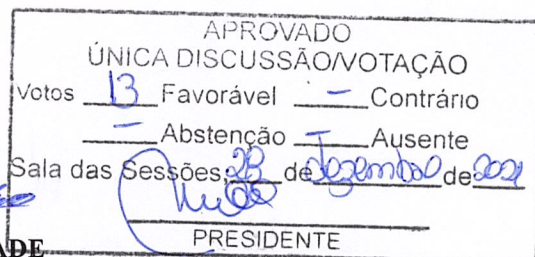 APROVADO
ÚNICA DISCUSSÃO/VOTAÇÃO
Votos 13 Favorável - Contrário
- Abstenção - Ausente
Sala das Sessões, de dezembro de 2021
PRESIDENTE
ADE